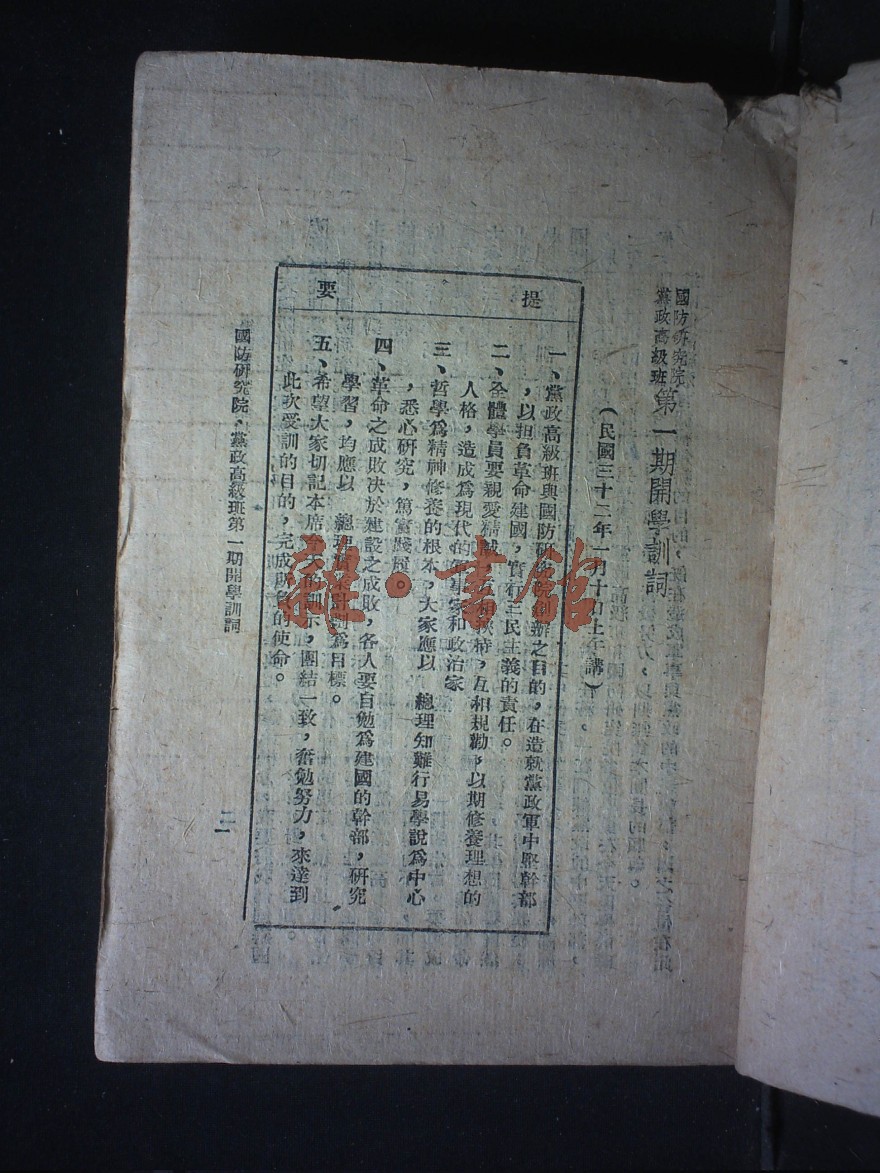 國防研究院
黨政高級班
第一期開學訓詞
(民國三十二年一月十日上午講)
提要
一、黨政高級班與國防研究院創辦之目的,在造就黨政軍中堅幹部
,以担負革命建國,實行三民主義的責任。
二、全體學員要親愛精誠,互相扶持,互相規勸,以期修養理想的
人格,造成為現代的軍事家和政治家
三、哲學為精神修養的根本,大家應以 總理知難行易學說為中心
,悉心研究,篤實踐履。
四、革命之成敗決於建設之成敗,各人要自勉為建國的幹部,研究
學習,均應以 總理實業計劃為目標。
五、希望大家切記本席今天的訓示,團結一致,奮勉努力,來達到
此次受訓的目的,完成所負的使命。
國防研究院、黨政高級班第一期開學訓詞
二一
龍·書館